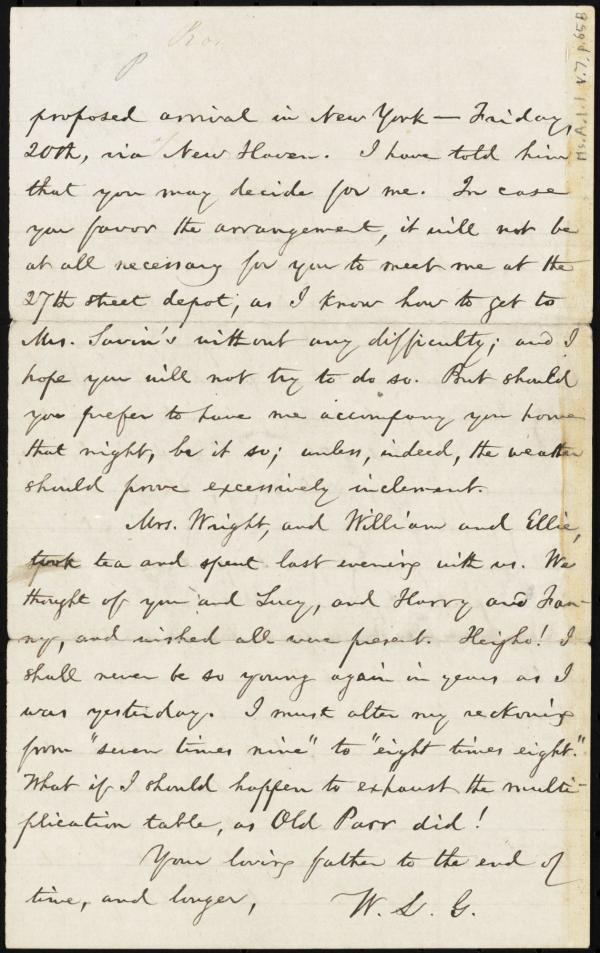 proposed arrival in New York — Friday,
20th, via New Haven. I have told him
that you may decide for me. In case
you favor the arrangement, it will not be
at all necessary for you to meet me at the
27th street depot, as I know how to get to
Mrs. Savin's without any difficulty; and I
hope you will not try to do so. But should
you prefer to have me accompany you home
that night, be it so; unless, indeed, the weather
should prove excessively inclement.
Mrs. Wright, and William and Ellie,
took tea and spent last evening with us. We
thought of you and Lucy, and Harry and Fan-
ny, and wished all were present. Heigho! I
shall never be so young again in years as I
was yesterday. I must alter my reckoning
from "seven times nine" to "eight times eight."
What if I should happen to exhaust the multi-
plication table, as Old Parr did!
Your loving father to the end of
time, and longer,
W. L. G.
Ms.A.1.1 v.7, p.65B